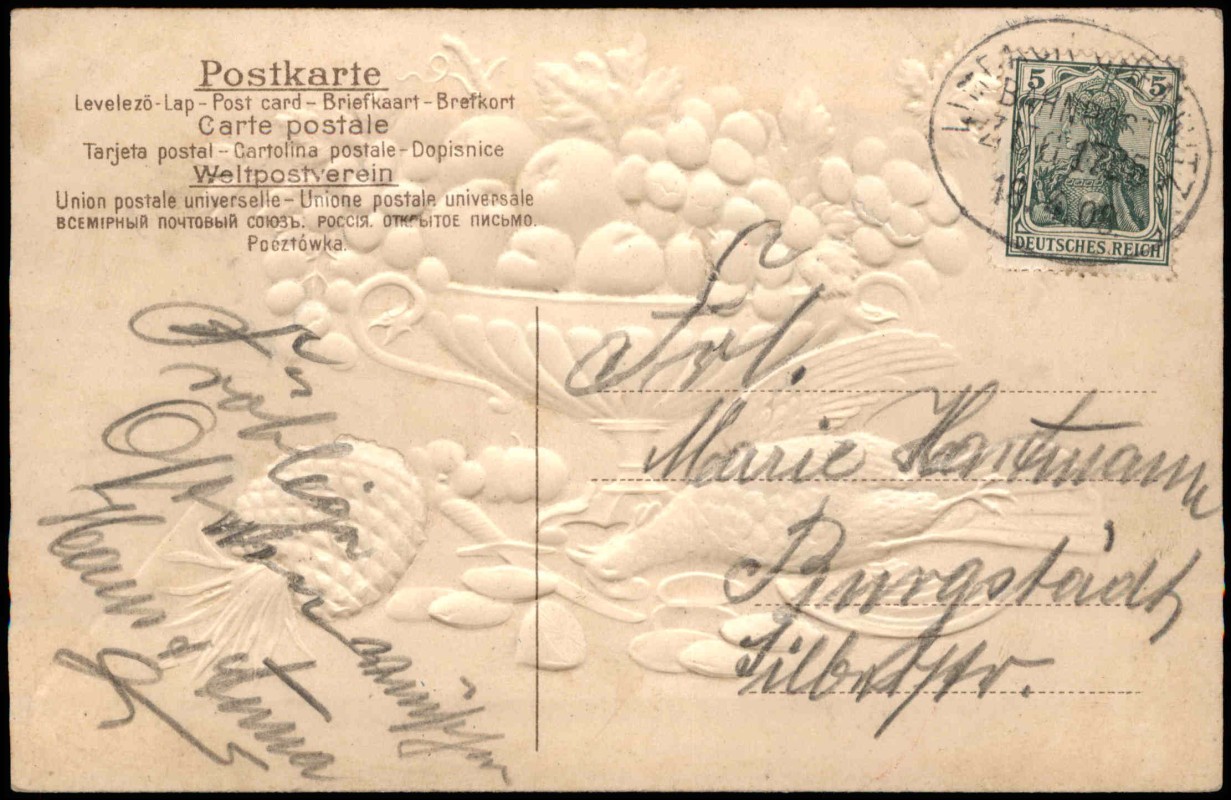 Postkarte
Levelező-Lap – Post card – Briefkaart – Brefkort
Carte postale
Tarjeta postal – Cartolina postale – Dopisnice
Weltpostverein
Union postale universelle – Unione postale universale
ВСЕМІРНЫЙ ПОЧТОВЫЙ СОЮЗЪ. РОССІЯ. ОТКРЫТОЕ ПИСЬМО.
Pocztówka.
5 5
DEUTSCHES REICH
BAHNPOST
Frl.
Marie Hartmann
Burgstädt
Silberstr.
Ein
Fröhliges
Oster
wünschen
Hans & Anna